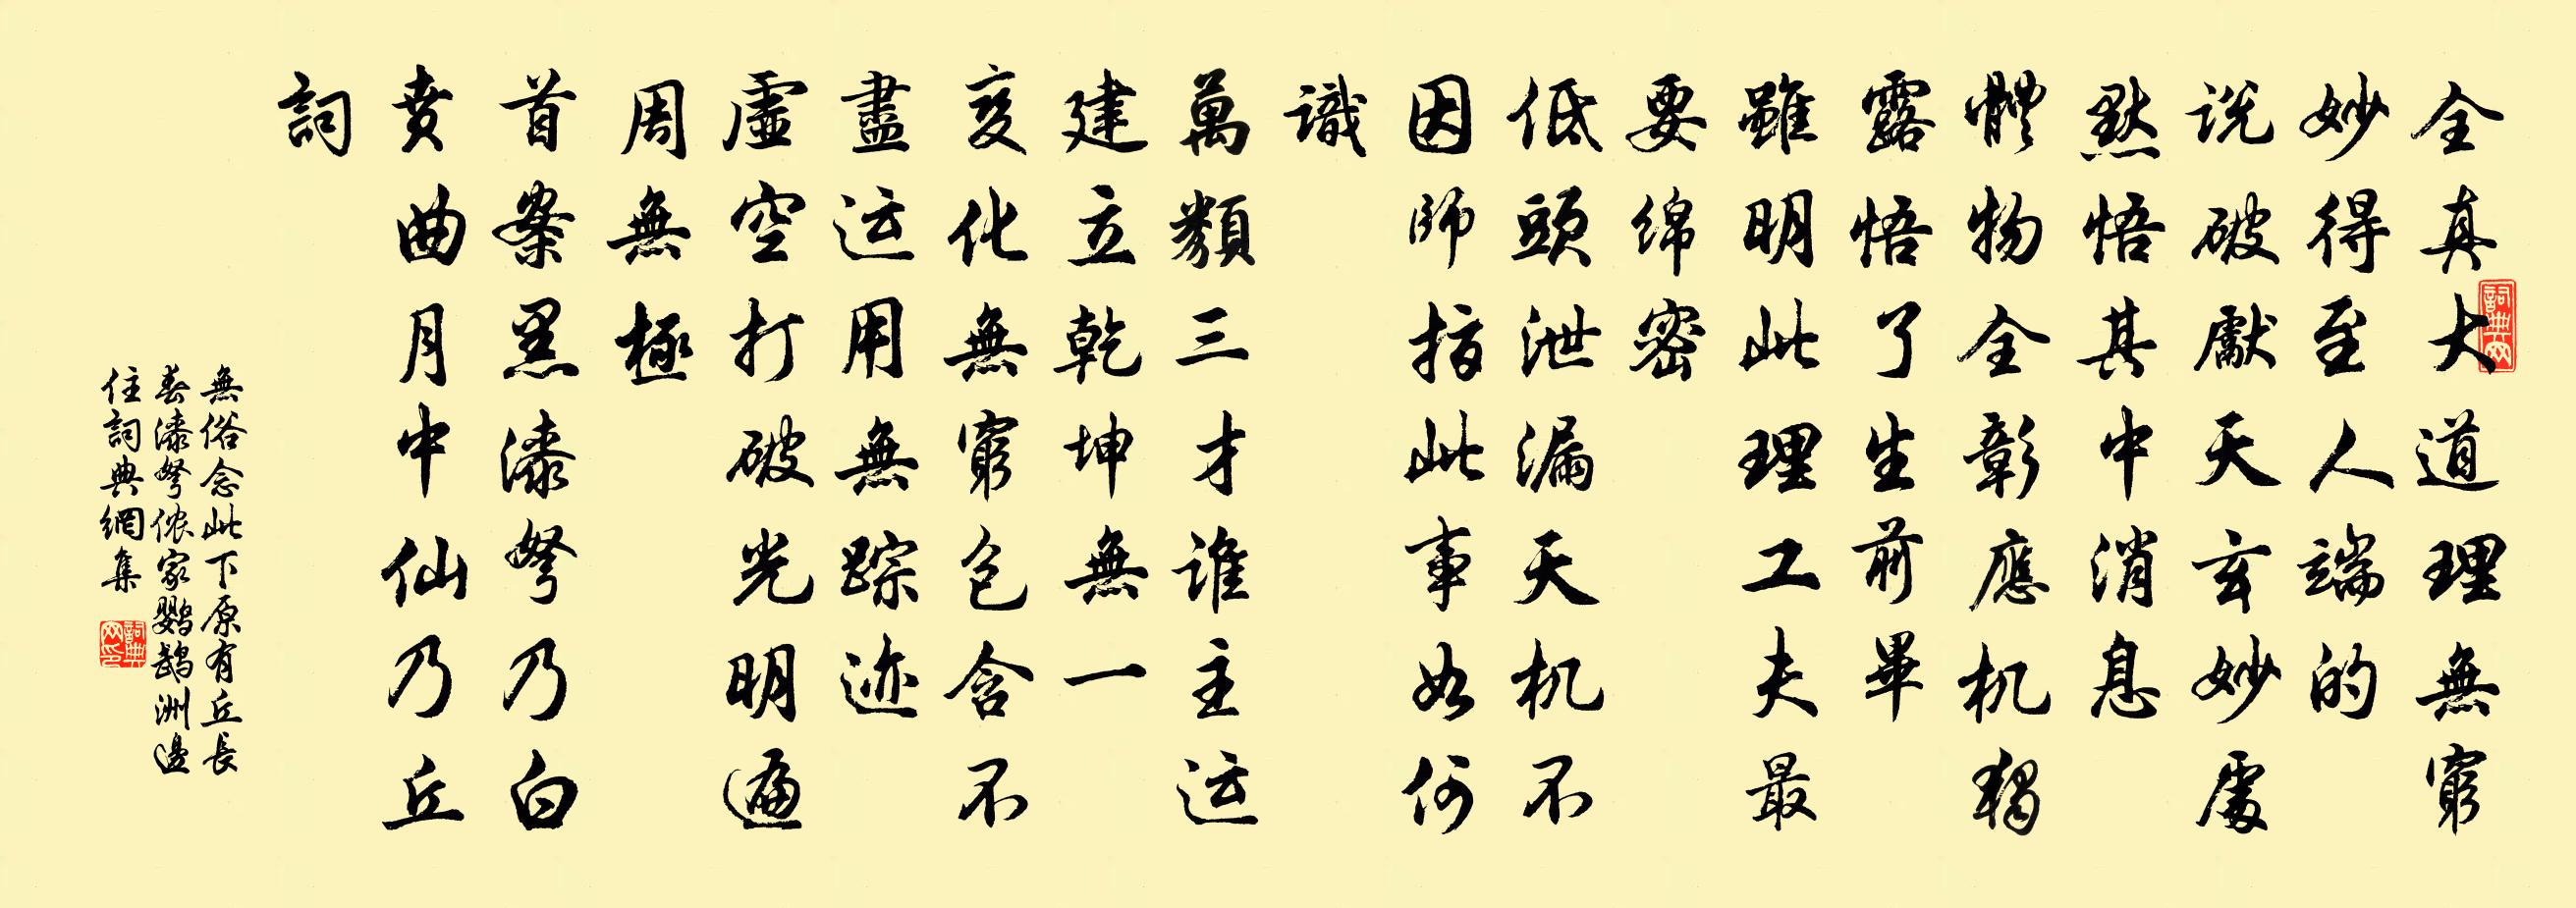 全真大道理無窮
妙得至人端的
说破獻天玄妙處
默悟其中消息
體物全彰應机獨
露悟了生前畢
雖明此理工夫最
要绵密
低頭泄漏天机不
因師指此事如何
識
萬類三才誰主运
建立乾坤無一
变化無窮包含不
盡运用無踪迹
虛空打破光明遍
周無極
首案黑漆弩乃白
賁曲月中仙乃丘
詞
無俗念此下原有丘長
春漆弩侬家鹦鹉洲邊
住詞典網集
詞典网
詞典网印